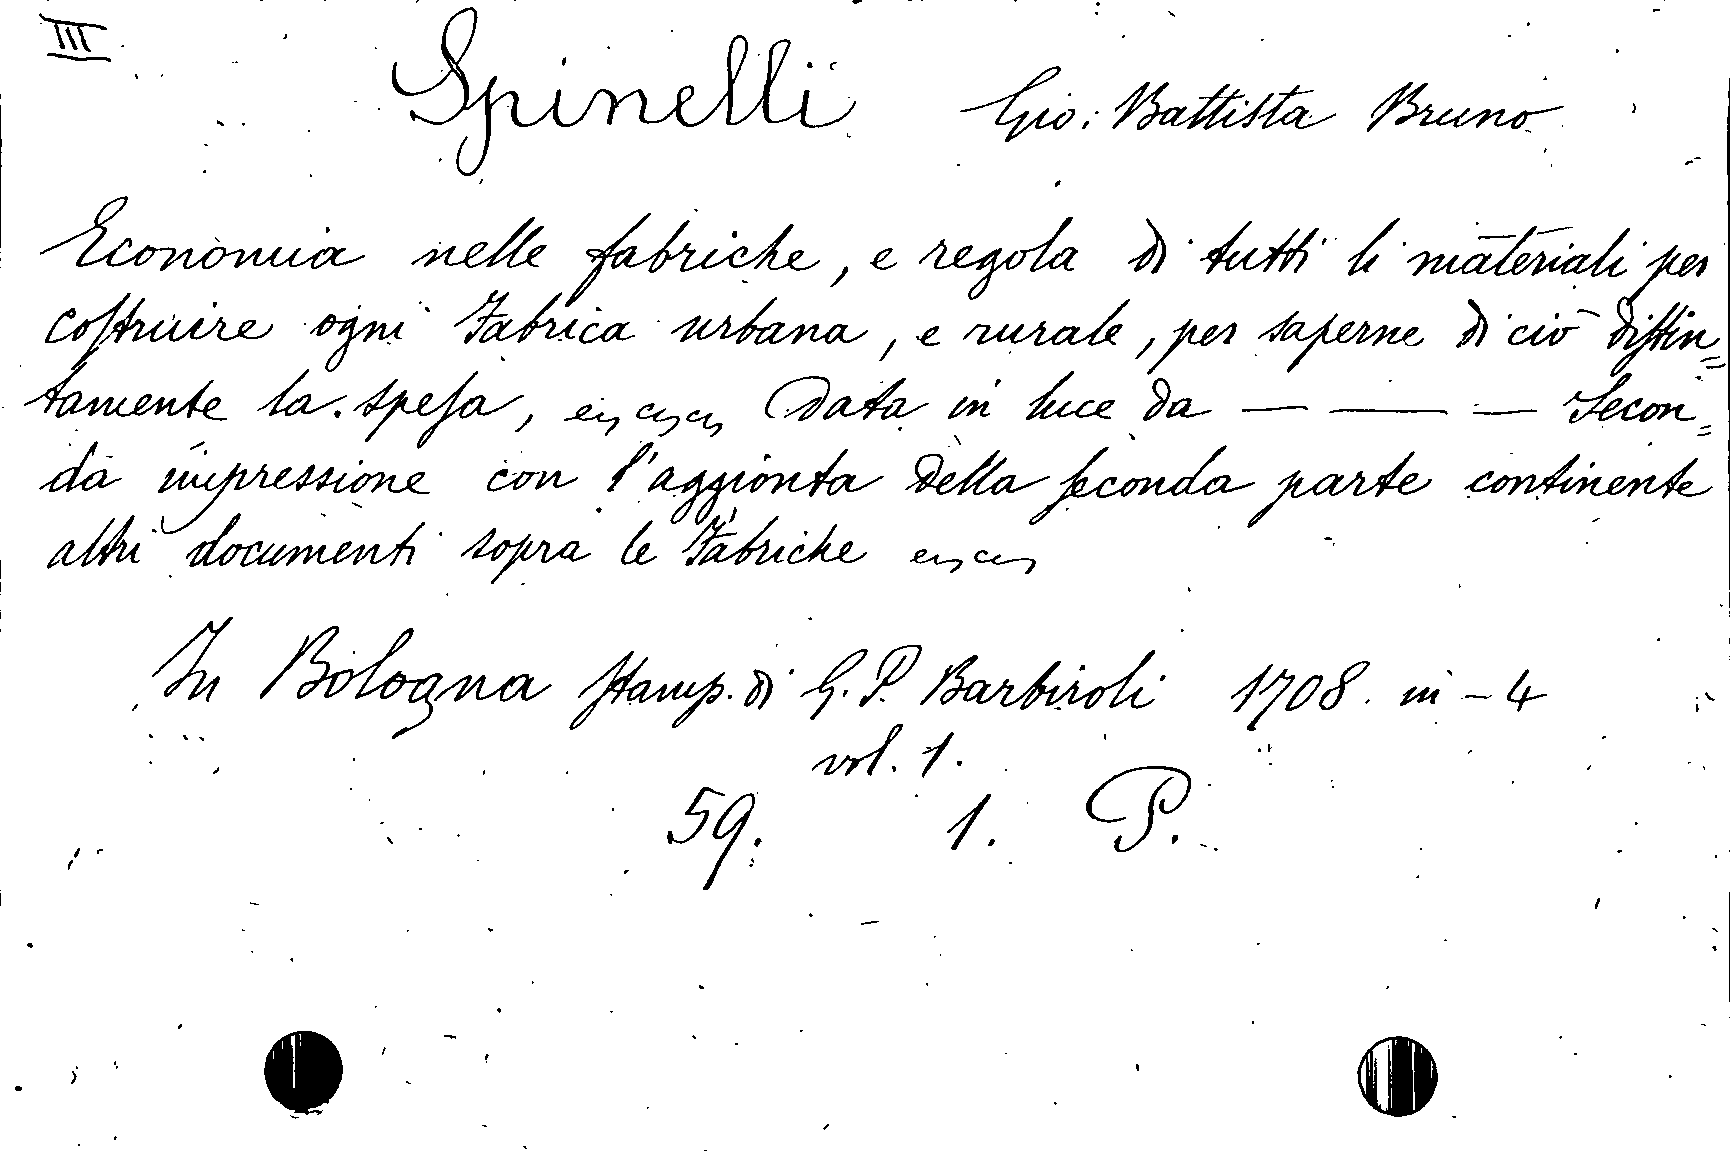 III
Spinelli Gio: Battista Bruno
Economia nelle fabriche, e regola di tutti li materiali per
coſtruire ogni Fabrica urbana, e rurale, per saperne di ciò diſtin=
tamente la speſa, Data in luce da — — — Secon=
da impressione con l'aggionta della ſeconda parte continente
altri documenti sopra le Fabriche
In Bologna ſtamp. di G. P. Barbiroli 1708. in - 4
vol. 1.
59. 1. P.